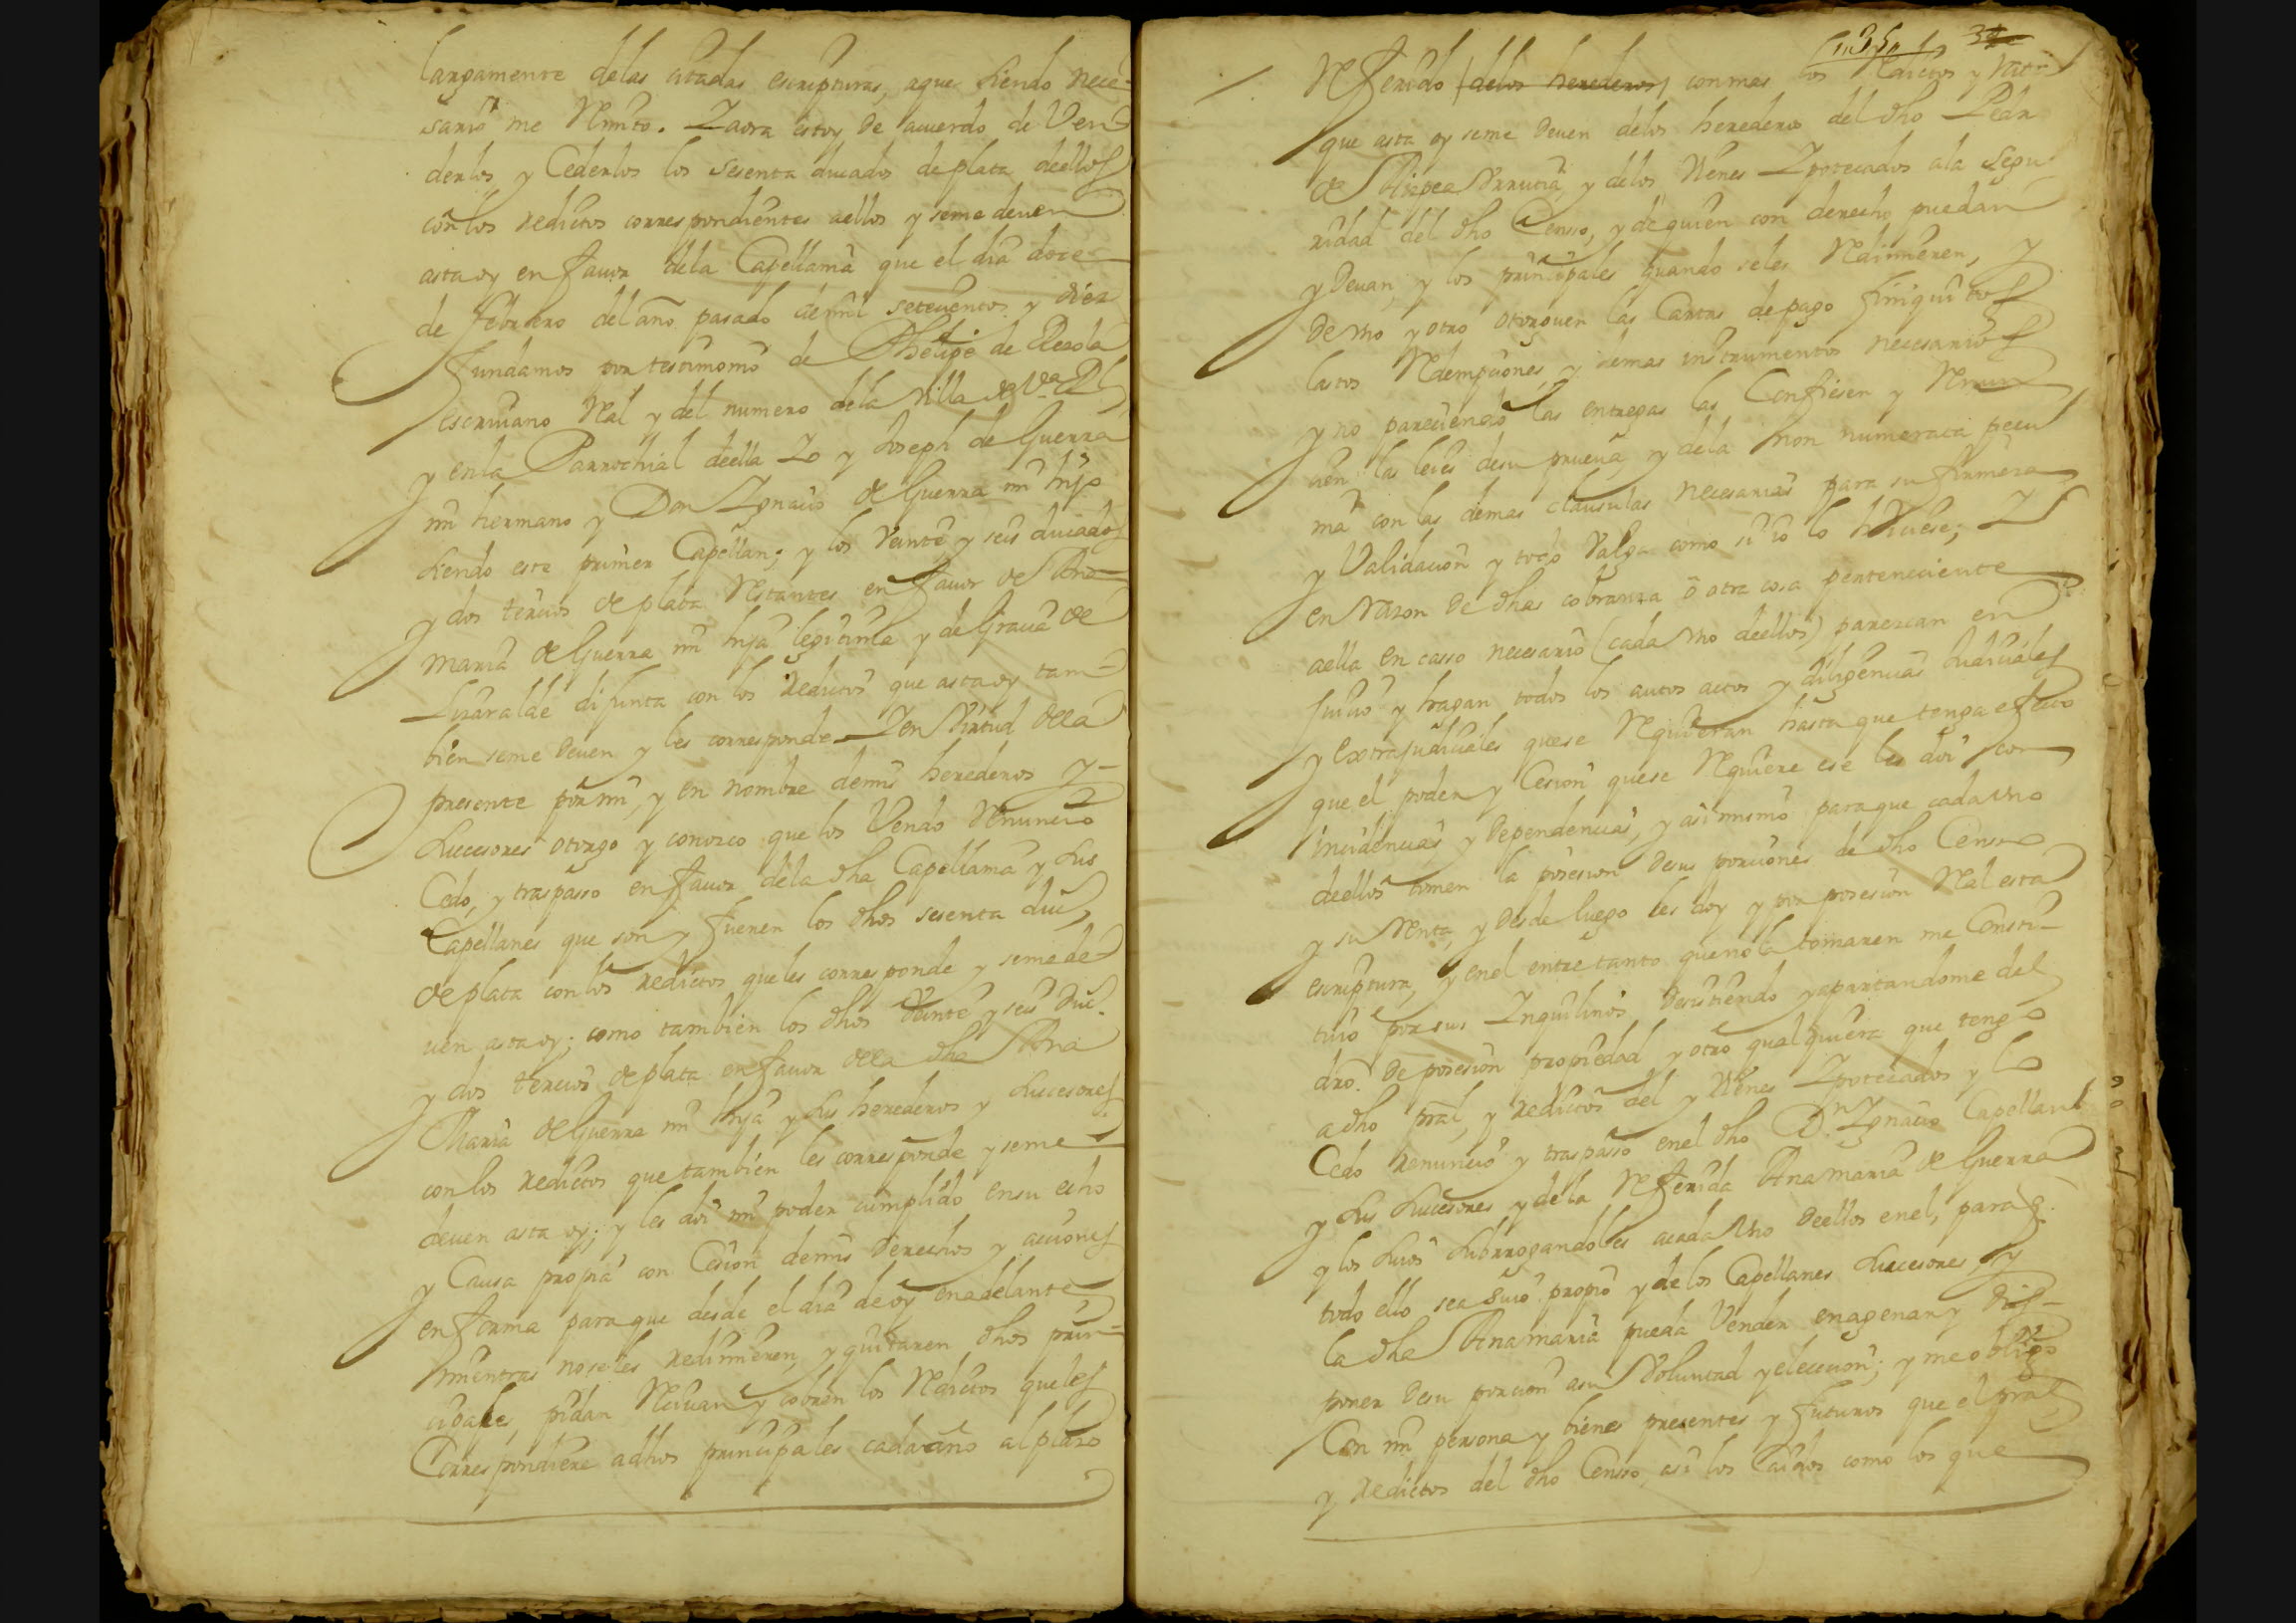 largamente delas citadas escripturas, aque siendo nece-
sario me Remito. Y aora estoy de acuerdo de Ven
derlos, y Cederlos los sesenta ducados de plata dellos
con los reditos correspondientes aellos y seme deuen
asta oy en fauor dela Capellania que el dia doce
de febrero del año pasado de mil setecientos y diez
fundamos por testimonio de Phelipe de
escriuano Real y del numero dela Villa de Va Rl
y enla Parrochial deella Yo y Joseph de Guerra
mi hermano y Don Ygnacio de Guerra mi hijo
siendo este primer Capellan; y los veinte y seis ducados
y dos tercios de plata Restantes en fauor de Ana
maria de Guerra mi hija legitima y de Graçia de
Lizaralde difunta con los reditos que asta oy tam
bien seme deuen y les corresponde. Y en Virtud dela
presente por mi, y en nombre demis herederos y
subcesores otorgo y conozco que los Vendo Renuncio
Cedo, y traspasso en fauor dela dha Capellania y sus
Capellanes que son y fueren los dhos sesenta duc
de plata con los reditos queles corresponde y seme de
uen asta oy; como tambien los dhos veinte y seis duc.
y dos tercios de plata en fauor dela dha Ana
Maria de Guerra mi hija y sus herederos y subcesores
con los reditos que tambien les corresponde y seme
deuen asta oy; y les doi mi poder cumplido ensu echo
y Causa propia con Cesion demis derechos y acciones
en forma paraque desde el dia de oy enadelante
mientras noseles redimieren, y quitaren dhos prin-
cipales, pidan Reciuan y cobren los Reditos queles
Correspondiere adhos principales cadaaño alplazo
1135 34
Referido (delos herederos) conmas los Reditos y
que asta oy seme deuen delos herederos del dho Pedro
de Aizpea Vrrutia, y delos Vienes Ypotecados ala segu
ridad del dho Censso, y de quien con derecho puedan
y Deuan, y los principales quando seles Redimieren, y
de vno y otro otorguen las Cartas de pago finiquitos
lastos Redempciones, y demas instrumentos necesarios
y no pareciendo las entregas las Confiesen y Renun
cien las leies desu prueua, y dela non numerata pecu
nia con las demas clausulas necesarias para su firmeza
y Validacion y todo Valga como si io lo hiciese; Y
en Razon de dhas cobranza ô otra cosa perteneciente
aella en casso necesario (cada vno deellos) parezcan en
juicio y hagan todos los autos actos y diligencias Judiciales
y extrajudiciales quese Requieran hasta que tenga efecto
que el poder y Cesion quese Requiere ese les doi con
incidencias y dependencias, y asi mismo paraque cada vno
deellos tomen la posesion desus porciones de dho Censso
y su Renta, y desde luego les doy y por posesion Real esta
escriptura, y enel entretanto queno la tomaren me Consti-
tuio por sus Ynquilinos desistiendo yapartandome del
dro. de posesion propiedad y otro qualquiera que tengo
a dho pral, y reditos del y Vienes Ypotecados y lo
Cedo renuncio y traspasso enel dho Dn Ygnacio Capellan
y sus subcesores y dela Referida Anamaria de Guerra
y los suios subrrogandoles acada vno deellos enel, para q.
todo ello sea suio propio y delos Capellanes subcesores y
la dha Anamaria pueda Vender, enagenar y dis-
poner desu porcion asu Voluntad yeleccion; y meobligo
Con mi persona y bienes presentes y futuros que el pral
y reditos del dho Censso, asi los Caidos como los que